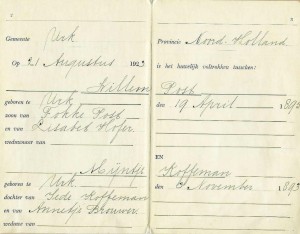 2
Gemeente Urk
Op 21 Augustus 192
Willem
geboren te Urk
zoon van Fokke Post
en van Lisabet Hofer
weduwnaar van
Mijntje
geboren te Urk
dochter van Jede Koffeman
en van Annetje Brouwer
weduwe van
3
Provincie Noord-Holland
is het huwelijk voltrokken tusschen:
Post
den 19 April 1895
EN
Koffeman
den November 1893